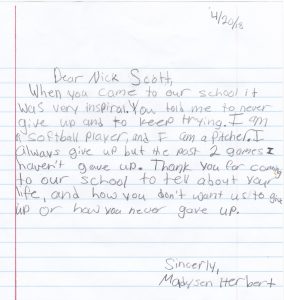 4/20/18
Dear Nick Scott,
When you came to our school it
was very inspiral. You told me to never
give up and to keep trying. I am
a softball player, and I am a pitcher. I
always give up but the past 2 games I
haven't gave up. Thank you for coming
to our school to tell about your
life, and how you don't want us to give
up or how you never gave up.
Sincerly,
Madyson Herbert